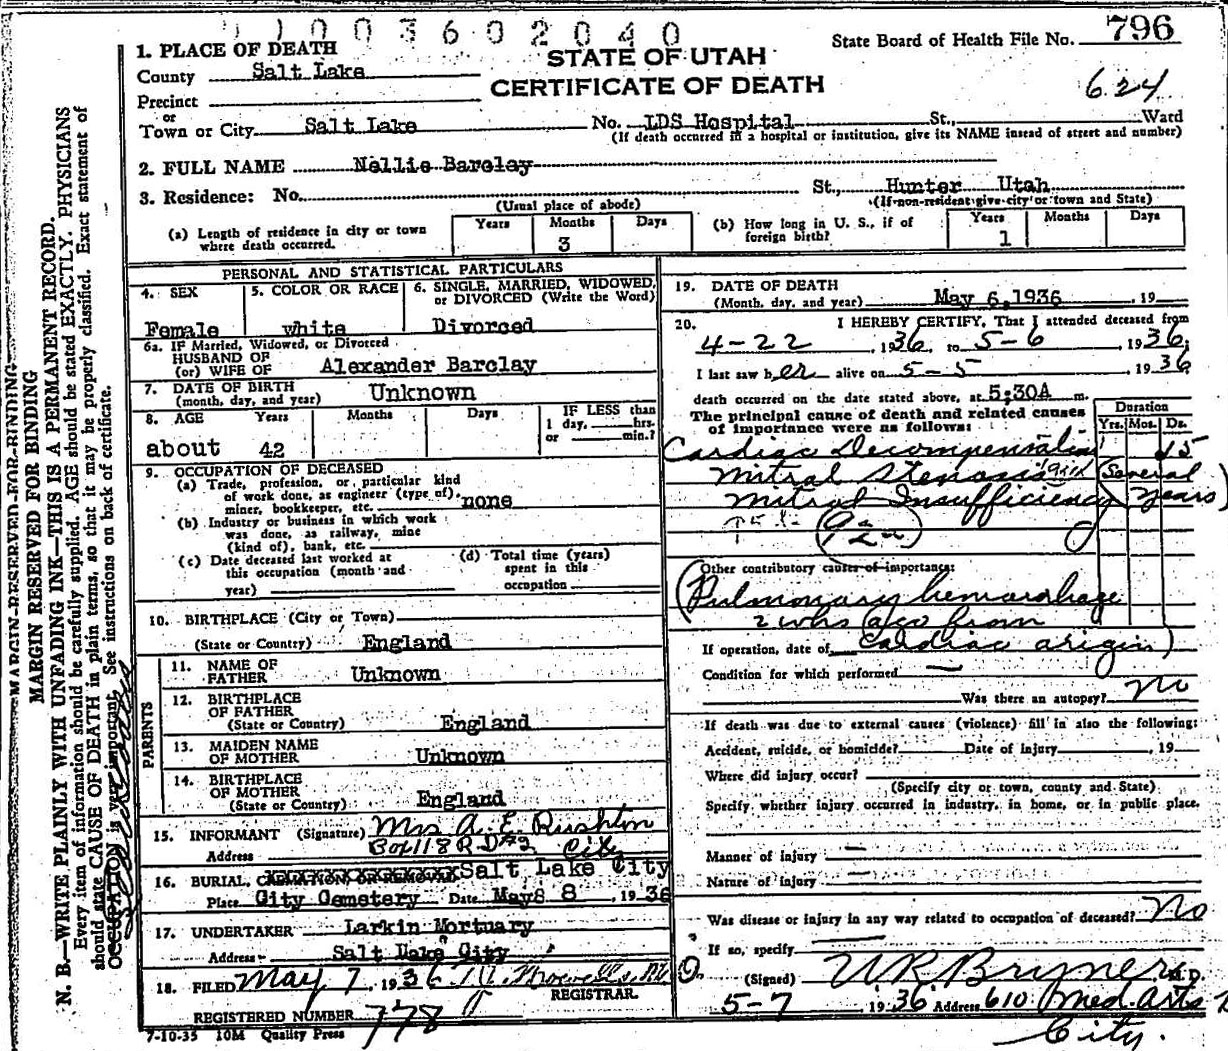 11003602040
State Board of Health File No. 796
1. PLACE OF DEATH
STATE OF UTAH
County Salt Lake
CERTIFICATE OF DEATH
624
Precinct
or
Town or City Salt Lake No. LDS Hospital St., Ward
(If death occurred in a hospital or institution, give its NAME instead of street and number)
2. FULL NAME Nellie Barclay
3. Residence: No. St., Hunter Utah
(Usual place of abode) (If non-resident give city or town and State)
(a) Length of residence in city or town where death occurred. Years Months 3 Days
(b) How long in U. S., if of foreign birth? Years 1 Months Days
PERSONAL AND STATISTICAL PARTICULARS
4. SEX Female
5. COLOR OR RACE white
6. SINGLE, MARRIED, WIDOWED, or DIVORCED (Write the Word) Divorced
6a. IF Married, Widowed, or Divorced
HUSBAND OF
(or) WIFE OF Alexander Barclay
7. DATE OF BIRTH
(month, day, and year) Unknown
8. AGE Years Months Days IF LESS than
1 day, hrs.
or min.?
about 42
9. OCCUPATION OF DECEASED
(a) Trade, profession, or particular kind
of work done, as engineer (type of),
miner, bookkeeper, etc. none
(b) Industry or business in which work
was done, as railway, mine
(kind of), bank, etc.
(c) Date deceased last worked at
this occupation (month and
year)
(d) Total time (years)
spent in this
occupation
10. BIRTHPLACE (City or Town)
(State or Country) England
PARENTS
11. NAME OF
FATHER Unknown
12. BIRTHPLACE
OF FATHER
(State or Country) England
13. MAIDEN NAME
OF MOTHER Unknown
14. BIRTHPLACE
OF MOTHER
(State or Country) England
15. INFORMANT (Signature) Mrs A. E. Rushton
Address Box 118 R.D #2 City
16. BURIAL, CREMATION OR REMOVAL Salt Lake City
Place City Cemetery Date May 8 8, 1936
17. UNDERTAKER Larkin Mortuary
Address Salt Lake City
18. FILED May 7, 1936
REGISTRAR.
REGISTERED NUMBER 778
7-10-35 10M Quality Press
19. DATE OF DEATH
(Month, day, and year) May 6, 1936, 19
20. I HEREBY CERTIFY, That I attended deceased from
4-22, 1936, to 5-6, 1936,
I last saw her alive on 5-5, 1936
death occurred on the date stated above, at 5:30A m.
The principal cause of death and related causes
of importance were as follows:
Duration
Yrs. Mos. Ds.
Cardiac Decompensation 15
Mitral Stenosis (Several
Mitral Insufficiency years)
92a
Other contributory causes of importance:
(Pulmonary hemorrhage
2 wks ago from
If operation, date of cardiac origin)
Condition for which performed
Was there an autopsy? No
If death was due to external causes (violence) fill in also the following:
Accident, suicide, or homicide? Date of Injury, 19
Where did injury occur?
(Specify city or town, county and State)
Specify whether injury occurred in industry, in home, or in public place.
Manner of injury
Nature of injury
Was disease or injury in any way related to occupation of deceased? No
If so, specify
(Signed) U R Bryner M.D.
5-7 1936 Address 610 Med. Arts
City.
MARGIN RESERVED FOR BINDING
MARGIN RESERVED FOR BINDING
N. B.—WRITE PLAINLY WITH UNFADING INK—THIS IS A PERMANENT RECORD.
Every item of information should be carefully supplied. AGE should be stated EXACTLY. PHYSICIANS
should state CAUSE OF DEATH in plain terms, so that it may be properly classified. Exact statement of
OCCUPATION is very important. See instructions on back of certificate.